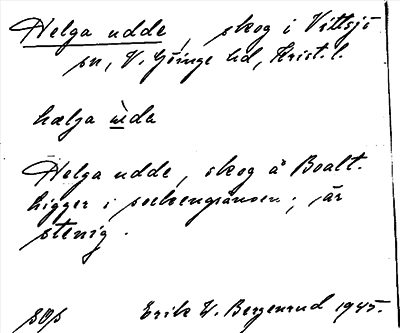 Helga udde, skog i Vittsjö
sn, V. Göinge hd, Krist. l.
hælja ùda
Helga udde, skog å Boalt.
ligger i sockengränsen; är
stenig.
Erik W. Bergenrud 1945.